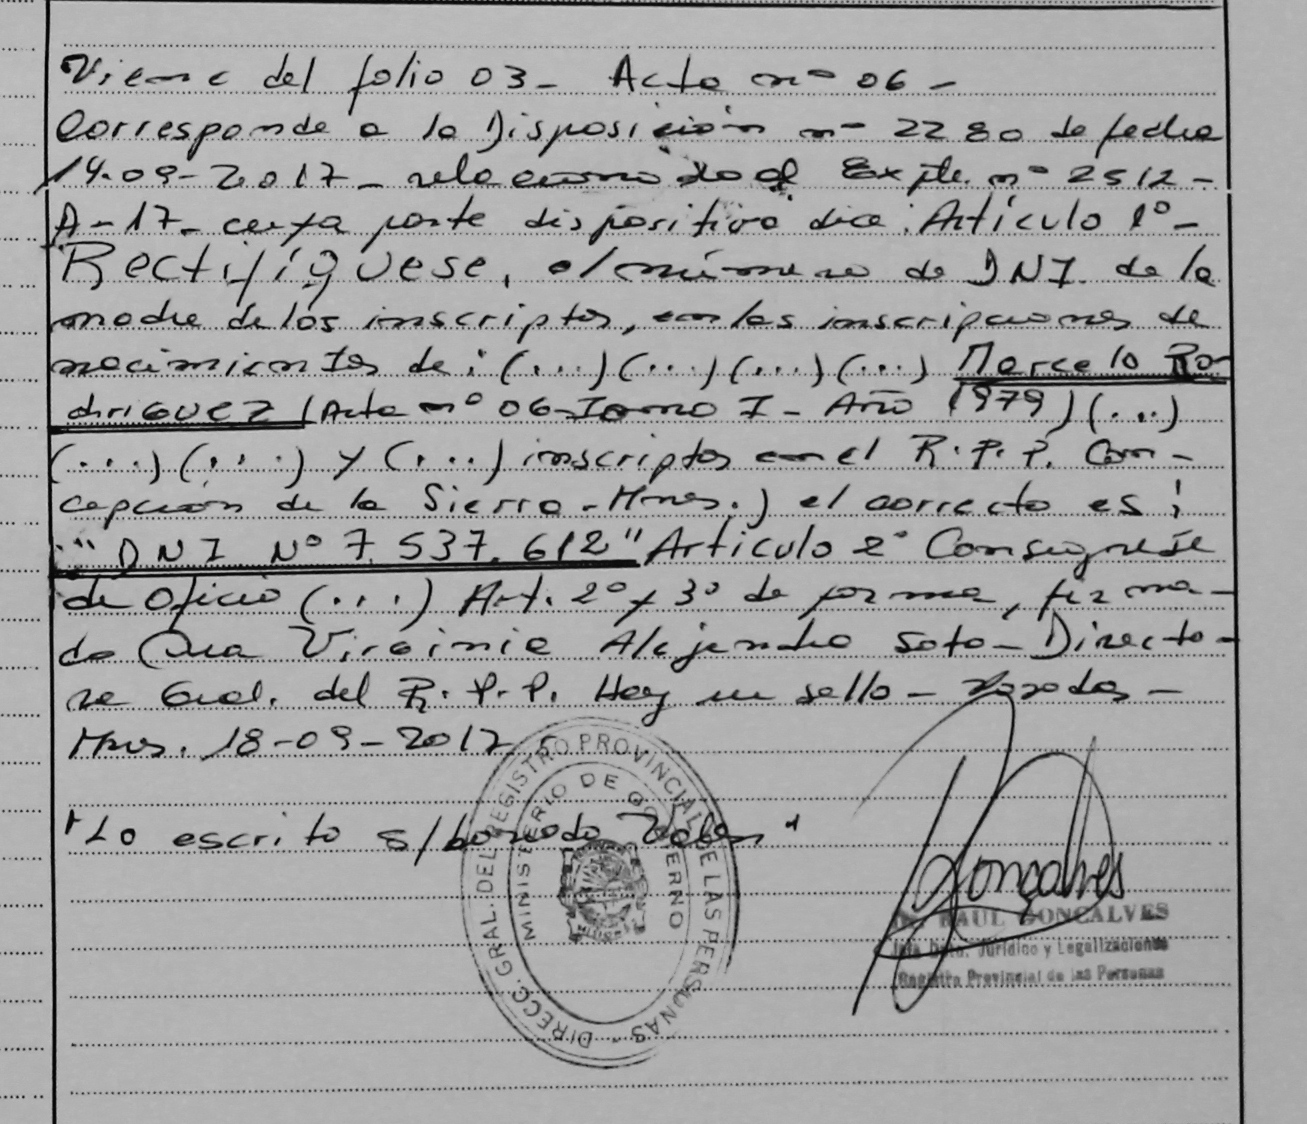 Viene del folio 03- Acta nº 06-
Corresponde a la Disposición nº 2280 de fecha
14-09-2017- relacionado al Expte. nº 2512-
A-17- cuya parte dispositiva dice: Artículo 1º-
Rectifíquese, el número de DNI. de la
madre de los inscriptos, en las inscripciones de
nacimientos de: (...) (...) (...) (...) Marcelo Ro-
driguez (Acta nº 06-Tomo I- Año 1979) (...)
(...) (...) y (...) inscriptos en el R.P.P. Con-
cepción de la Sierra-Mnes.) el correcto es:
"DNI Nº 7.537.612" Artículo 2º Consignese
de Oficio (...) Art. 2º y 3º de forma, firma-
do Dra Virginia Alejandra Soto- Directo-
ra Gral. del R.P.P. Hay un sello- Posadas-
Mnes. 18-09-2017
"Lo escrito s/borrado Vale"
DIRECC. GRAL. DEL REGISTRO PROVINCIAL DE LAS PERSONAS
MINISTERIO DE GOBIERNO
Gonçalves
RAUL GONCALVES
Jefe Dpto. Jurídico y Legalizaciones
Registro Provincial de las Personas